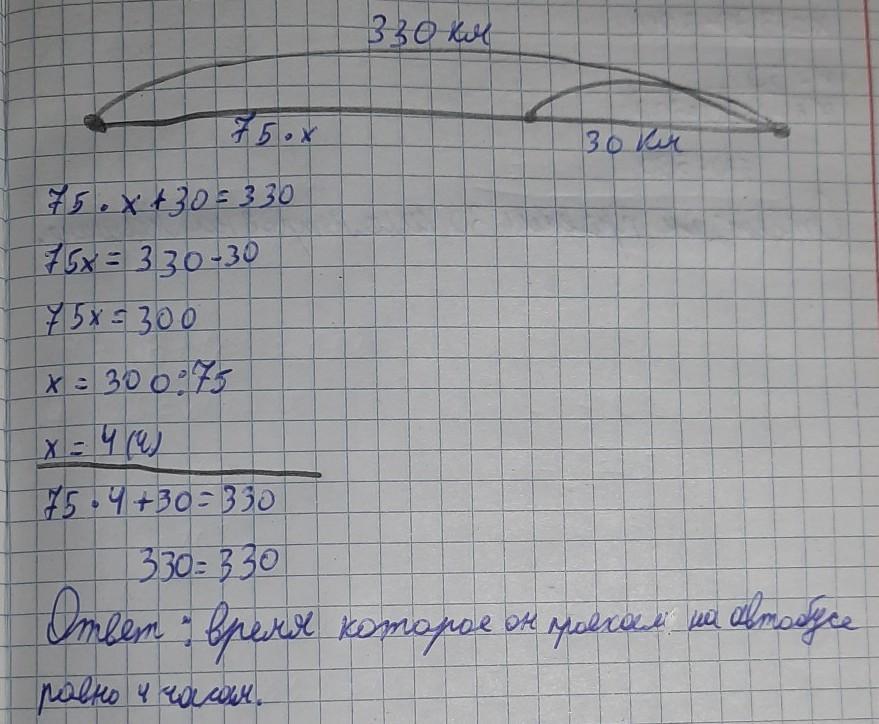 330 км
75·x
30 км
75·x+30=330
75x=330-30
75x=300
x=300:75
x=4(ч)
75·4+30=330
330=330
Ответ: время которое он проехал на автобусе
равно 4 часам.